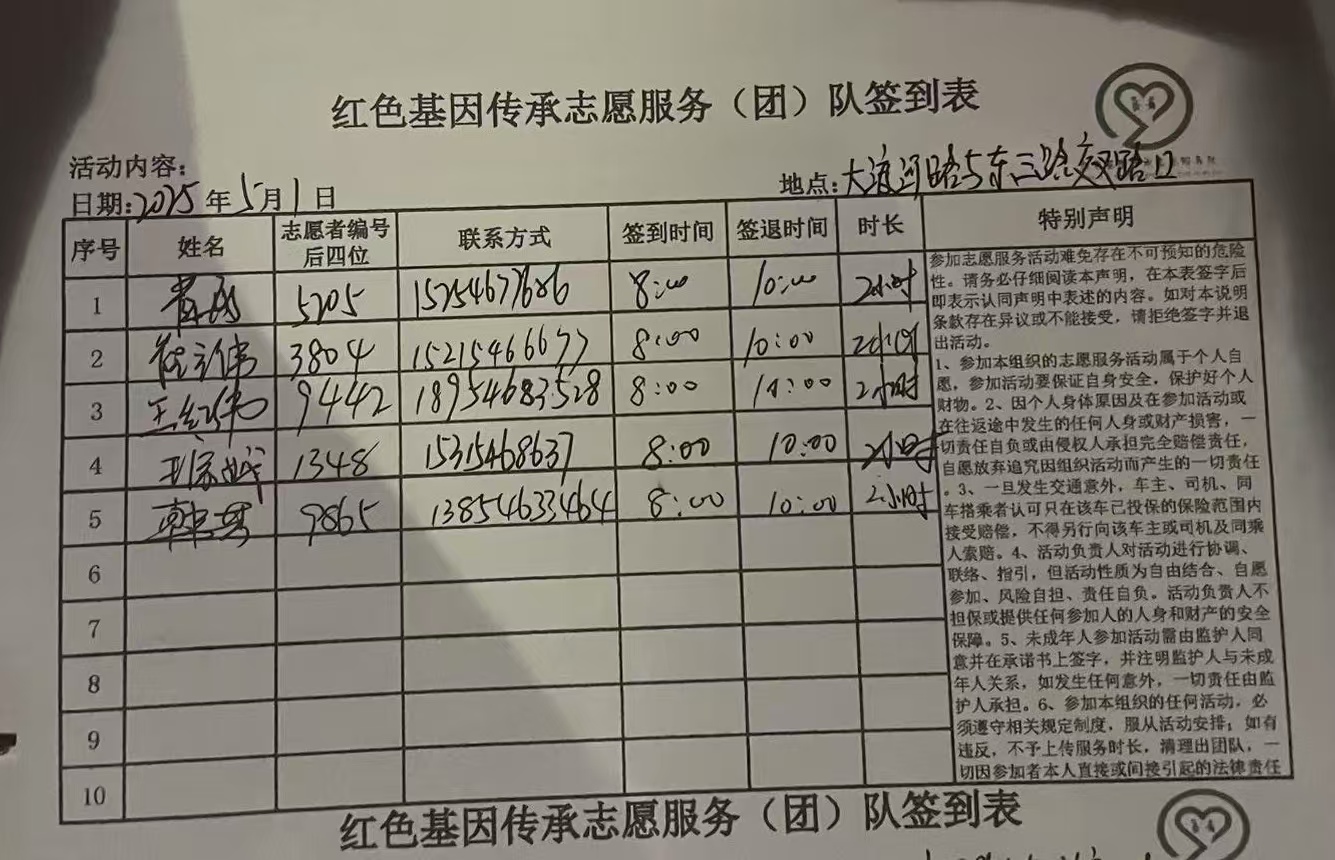 红色基因传承志愿服务（团）队签到表
活动内容：
日期:2025年5月1日
地点:大渡河路与东三路交叉路口
序号 姓名 志愿者编号后四位 联系方式 签到时间 签退时间 时长 特别声明
1 5205 15254677686 8:00 10:00 2小时
2 3804 15215466677 8:00 10:00 2小时
3 王红伟 9442 18954683528 8:00 10:00 2小时
4 1348 15315468637 8:00 10:00 2小时
5 9865 13854633464 8:00 10:00 2小时
6
7
8
9
10
参加志愿服务活动难免存在不可预知的危险
性。请务必仔细阅读本声明，在本表签字后
即表示认同声明中表述的内容。如对本说明
条款存在异议或不能接受，请拒绝签字并退
出活动。
1、参加本组织的志愿服务活动属于个人自
愿，参加活动要保证自身安全，保护好个人
财物。2、因个人身体原因及在参加活动或
在往返途中发生的任何人身或财产损害，一
切责任自负或由侵权人承担完全赔偿责任，
自愿放弃追究因组织活动而产生的一切责任
。3、一旦发生交通意外，车主、司机、同
车搭乘者认可只在该车已投保的保险范围内
接受赔偿，不得另行向该车主或司机及同乘
人索赔。4、活动负责人对活动进行协调、
联络、指引，但活动性质为自由结合、自愿
参加、风险自担、责任自负。活动负责人不
担保或提供任何参加人的人身和财产的安全
保障。5、未成年人参加活动需由监护人同
意并在承诺书上签字，并注明监护人与未成
年人关系，如发生任何意外，一切责任由监
护人承担。6、参加本组织的任何活动，必
须遵守相关规定制度，服从活动安排；如有
违反，不予上传服务时长，清理出团队，一
切因参加者本人直接或间接引起的法律责任
红色基因传承志愿服务（团）队签到表